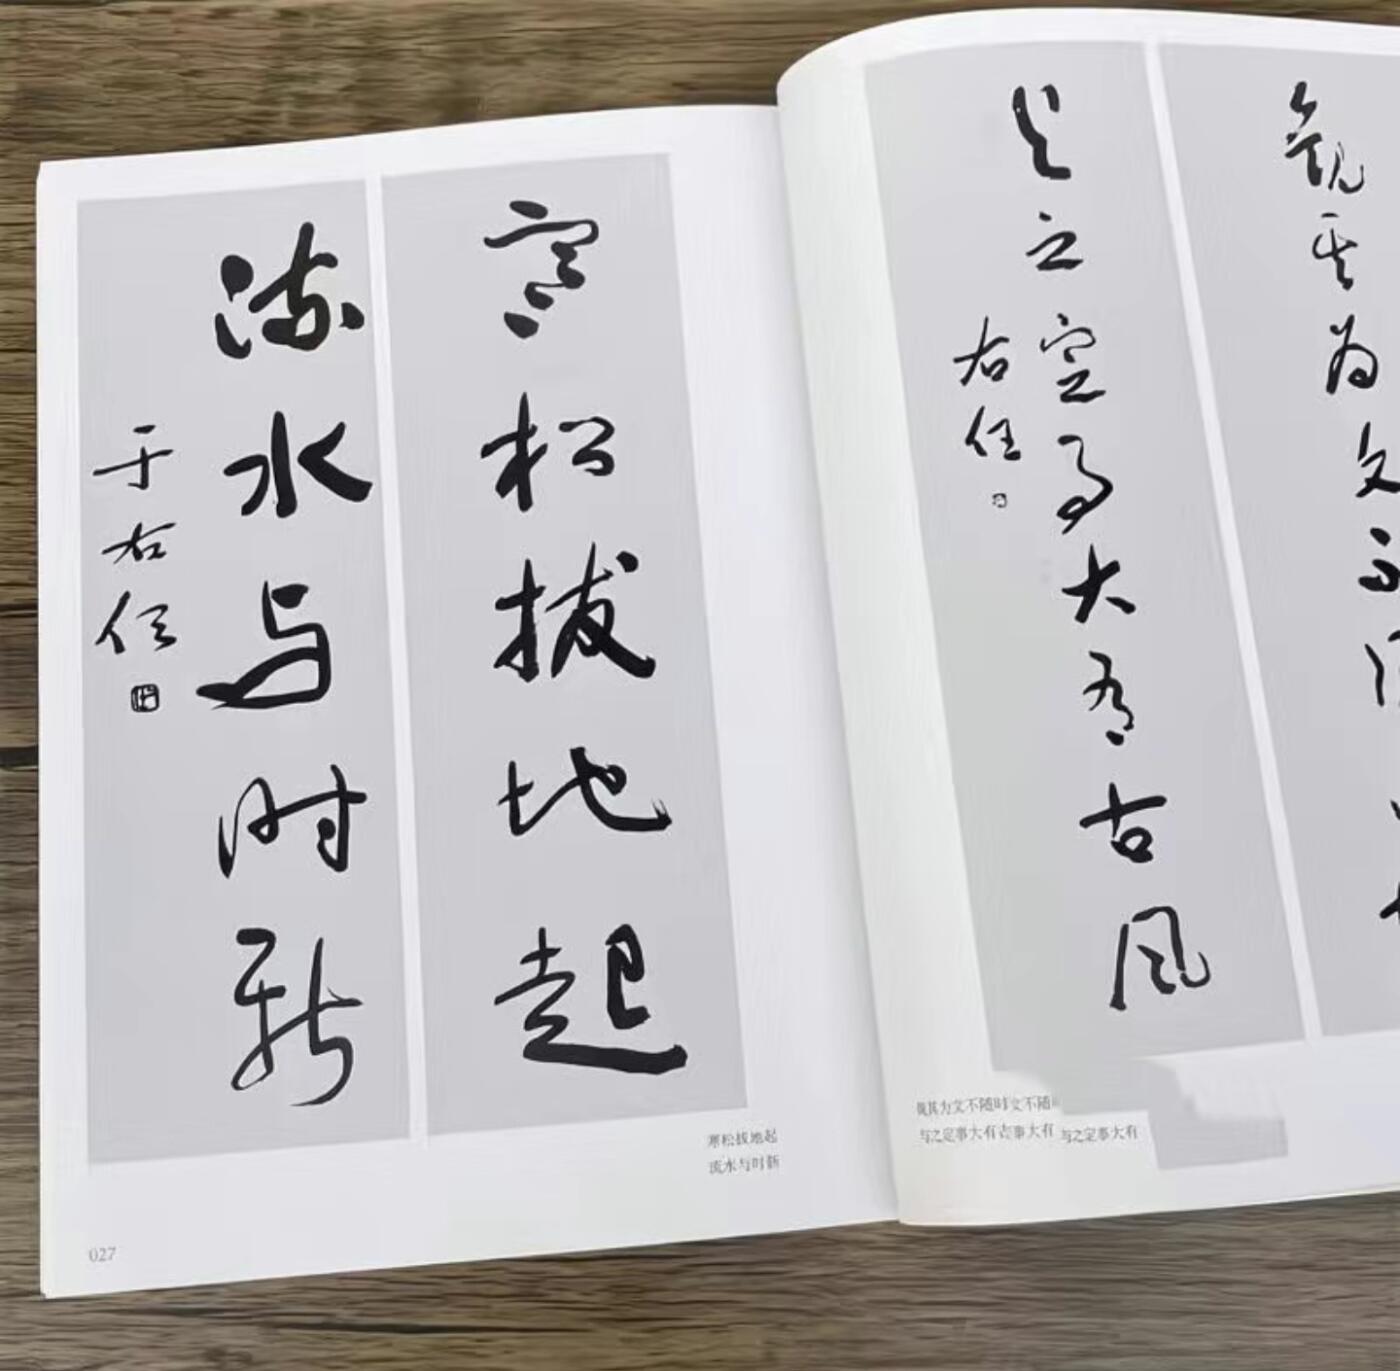 寒松拔地起
流水与时新
于右任
寒松拔地起
流水与时新
027
观其为文不随时
与之定事大有古风
右任
观其为文不随时文不随
与之定事大有古事大有 与之定事大有